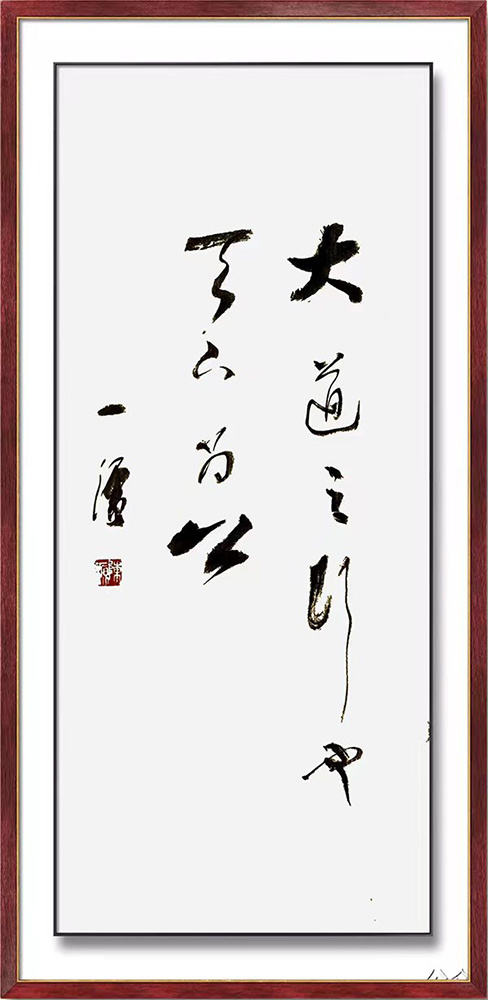 大道之行也
天下為公
一